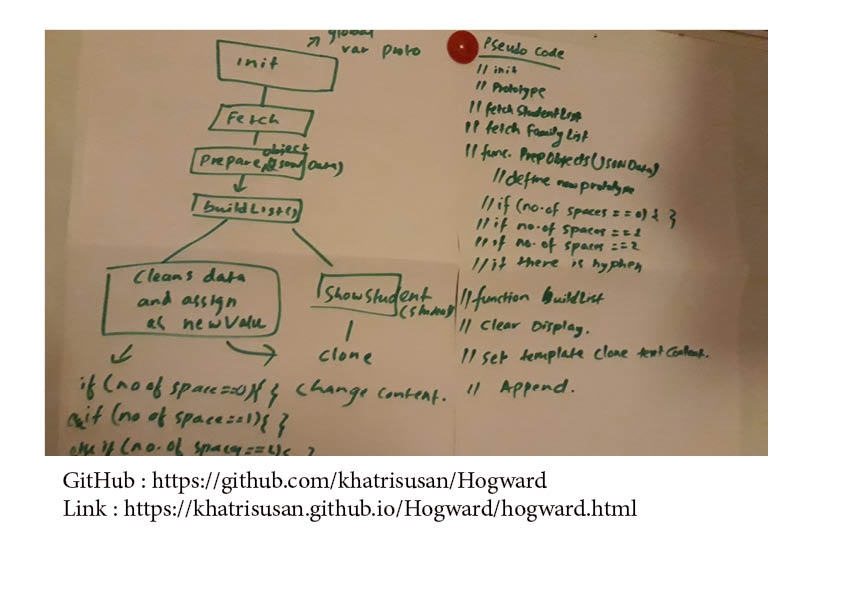 global
var proto
init
Fetch
object
Prepare (JSON Data)
buildList()
Cleans data
and assign
as newValue
ShowStudent
clone
if (no of space==0){ { change content.
if (no of space==1){ }
else if (no. of spaces ==2){ }
Pseudo Code
// init
// Prototype
// fetch StudentList
// fetch Family List
// func. PrepObjects(JSON Data)
// define new prototype
// if (no.of spaces ==0) { }
// if no.of spaces ==1
// if no. of spaces ==2
// if there is hyphen
// function buildList
// Clear Display.
// set template clone text content.
// Append.
GitHub : https://github.com/khatrisusan/Hogward
Link : https://khatrisusan.github.io/Hogward/hogward.html